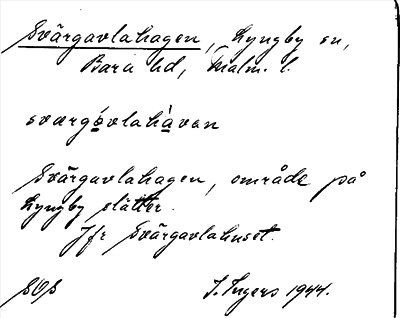 Svärgavlahagen, Lyngby sn,
Bara hd, Malm. l.
sværgòvlahàvan
Svärgavlahagen, område på
Lyngby slätter.
Jfr Svärgavlahuset.
SOS I. Ingers 1944.